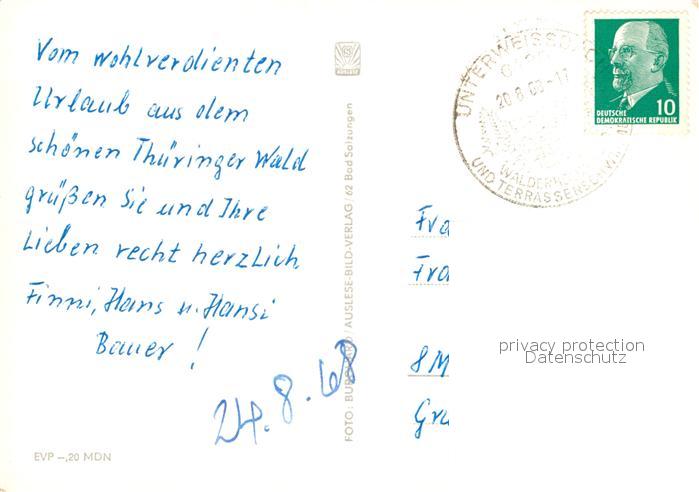 Vom wohlverdienten
Urlaub aus dem
schönen Thüringer Wald
grüßen Sie und Ihre
Lieben recht herzlich
Finni, Hans u. Hansi
Bauer !
24.8.68
EVP –,20 MDN
AUSLESE-BILD-VERLAG / 62 Bad Salzungen
FOTO:
UNTERWEISSB
20.8.68-17
UND TERRASSENSCHW
10
DEUTSCHE
DEMOKRATISCHE REPUBLIK
Fra
Fra
8 M
privacy protection
Datenschutz
Gra